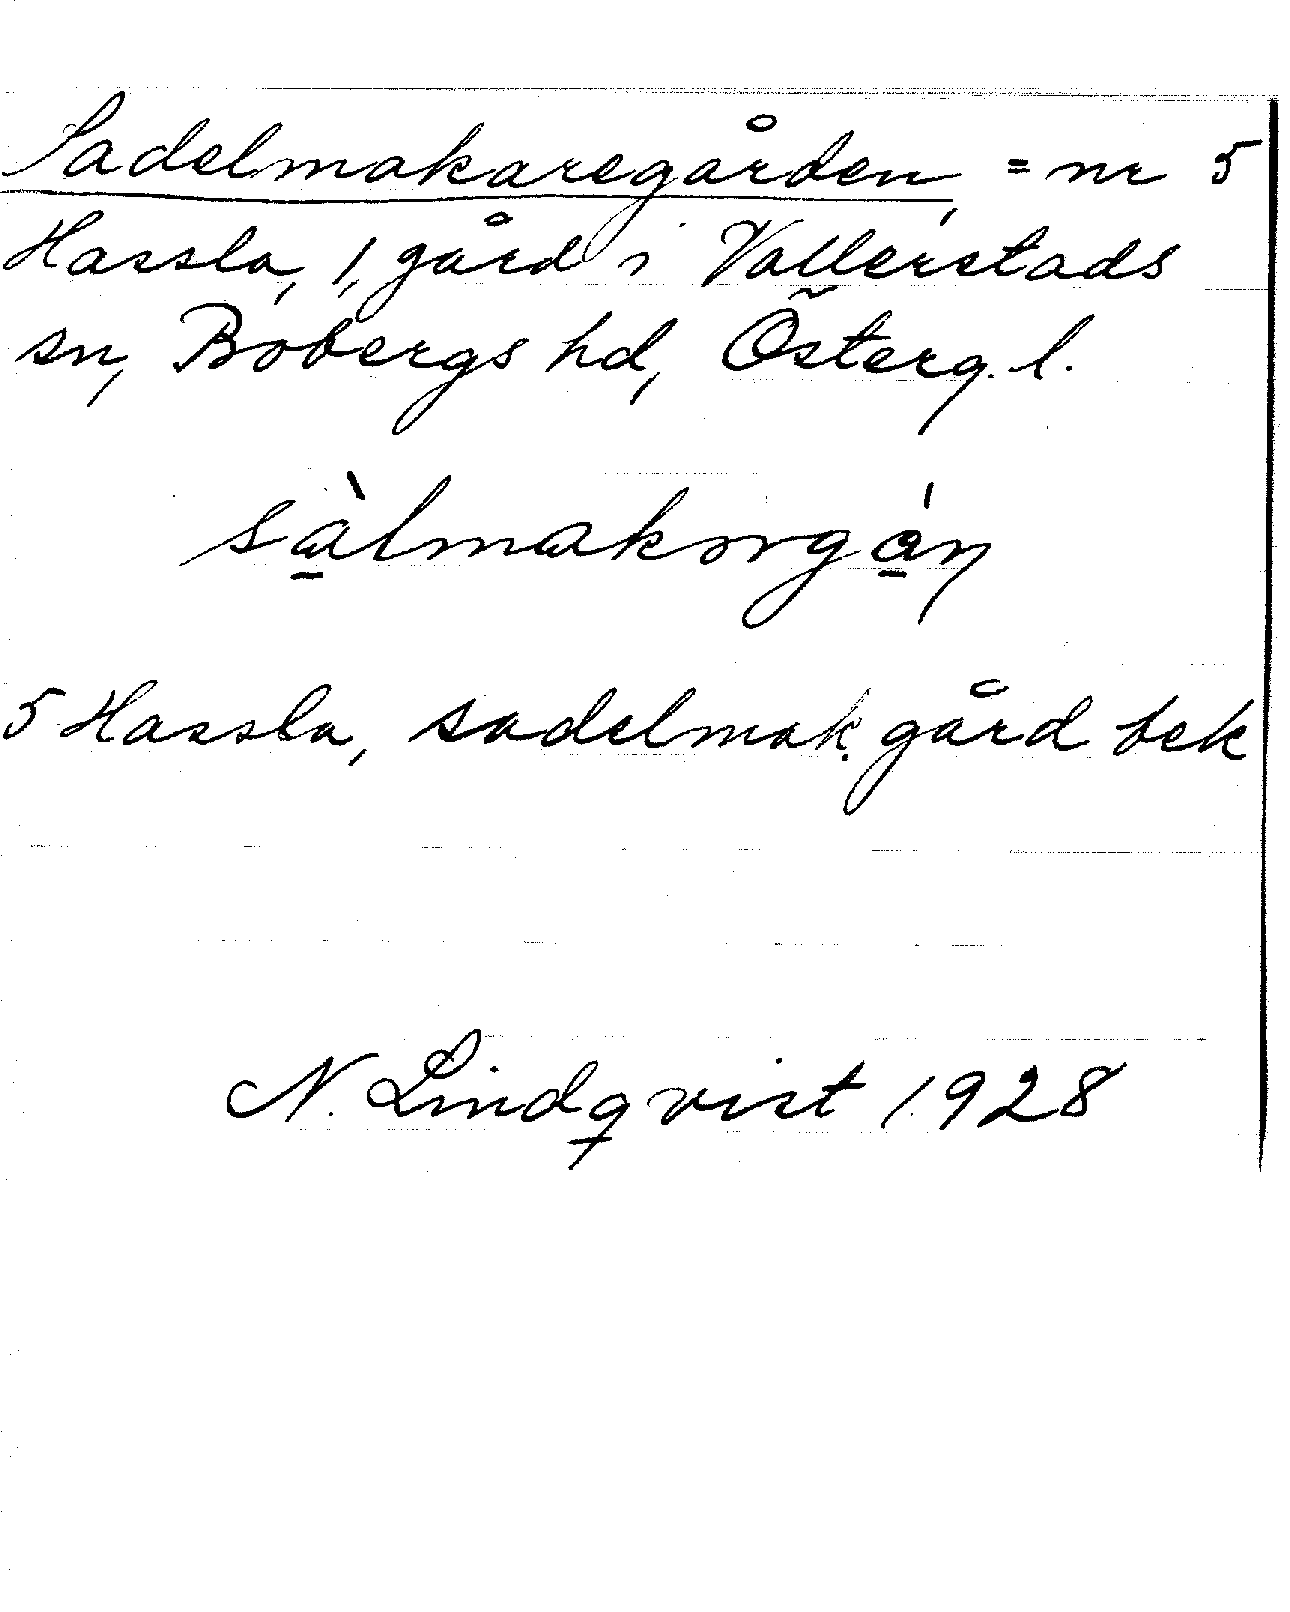 Sadelmakaregården, = nr 5
Hassla, 1, gård i Vallerstads
sn, Bobergs hd, Österg. l.
sà̱lmakorgá̱n
5 Hassla, sadelmak. gård bek
N. Lindqvist 1928